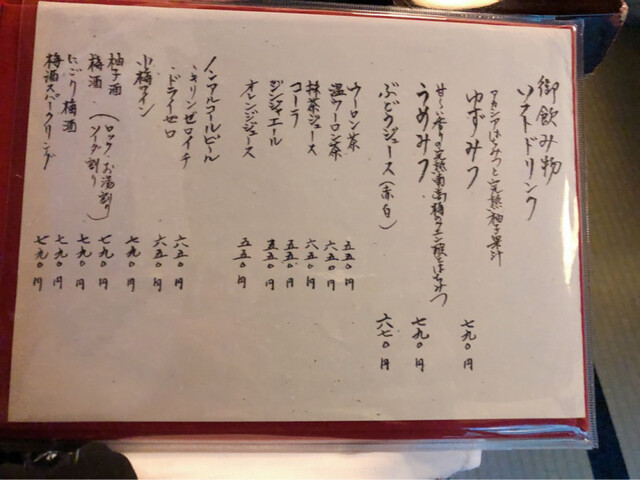 御飲み物
ソフトドリンク
アカシアはちみつと完熟柚子果汁
ゆずみつ 七九〇円
甘〜い香りの完熟南高梅のクエン酸とはちみつ
うめみつ 七九〇円
ぶどうジュース(赤白) 六七〇円
ウーロン茶 五五〇円
温ウーロン茶 六五〇円
抹茶ジュース 六五〇円
コーラ 五五〇円
ジンジャエール 五五〇円
オレンジジュース 五五〇円
ノンアルコールビール
・キリンゼロイチ 六五〇円
・ドライゼロ 六五〇円
小梅ワイン 七九〇円
柚子酒 七九〇円
梅酒 (ロック・お湯割り ソイダ割り) 七九〇円
にごり梅酒 七九〇円
梅酒スパークリング 七九〇円